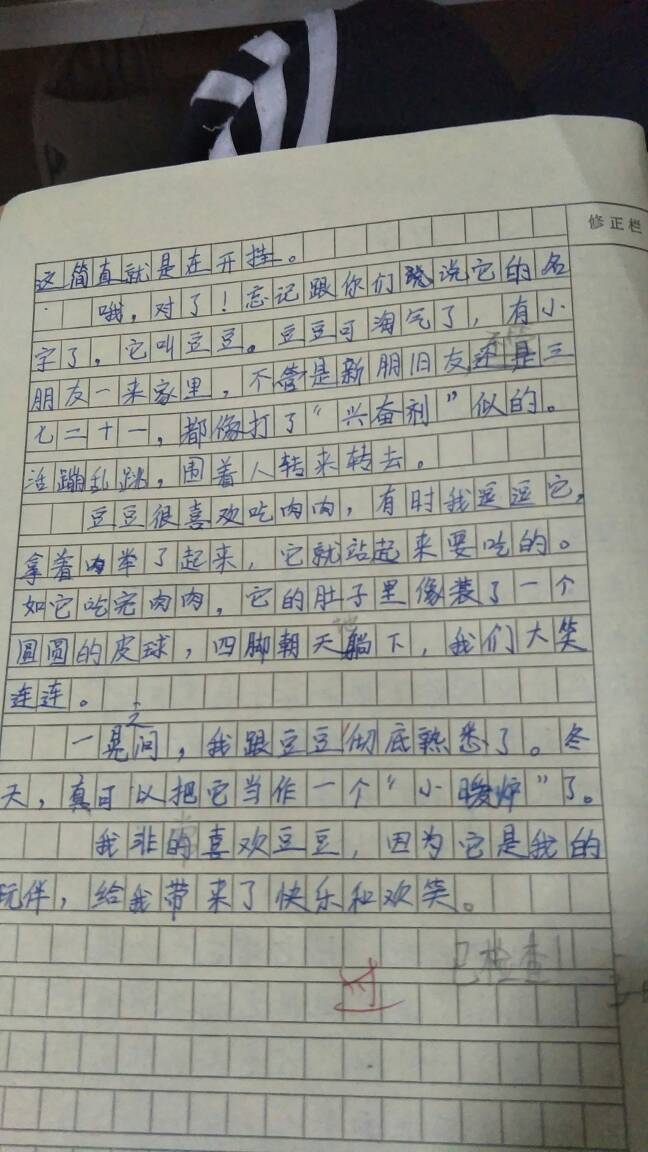 修正栏
这简直就是在开挂。
哦,对了!忘记跟你们说说它的名
字了,它叫豆豆。豆豆可淘气了,有小
朋友一来家里,不管是新朋旧友还是三
七二十一,都像打了“兴奋剂”似的。
活蹦乱跳,围着人转来转去。
豆豆很喜欢吃肉肉,有时我逗逗它,
拿着肉举了起来,它就站起来要吃的。
如它吃完肉肉,它的肚子里像装了一个
圆圆的皮球,四脚朝天躺下,我们大笑
连连。
一晃之间,我跟豆豆彻底熟悉了。冬
天,真可以把它当作一个“小暖炉”了。
我非的喜欢豆豆,因为它是我的
玩伴,给我带来了快乐和欢笑。
已检查